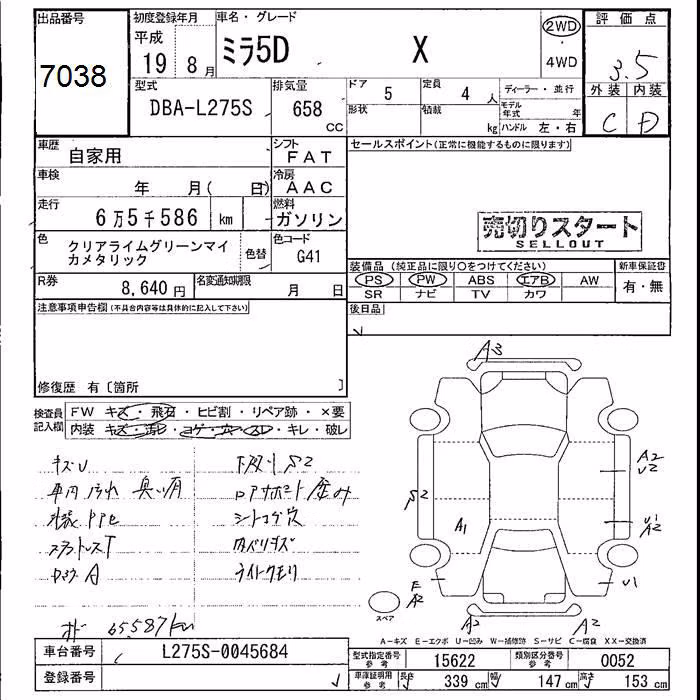 出品番号
7038
初度登録年月
平成
19 8月
車名・グレード
ミラ5D X
2WD
4WD
評価点
3.5
外装 内装
C D
型式
DBA-L275S
排気量
658
CC
ドア
5
形状
定員
4 人
積載
kg
ディーラー・並行
モデル年式 年
ハンドル 左・右
車歴
自家用
シフト
FAT
車検
年 月( 日)
冷房
AAC
走行
6万5千586 km
燃料
ガソリン
色
クリアライムグリーンマイ
カメタリック
色替
色コード
G41
R券
8,640円
名変通知期限
月 日
セールスポイント(正常に機能するものに限ります)
売切りスタート
SELLOUT
装備品 (純正品に限り○をつけてください)
新車保証書
PS PW ABS エアB AW
SR ナビ TV カワ
有・無
後日品
注意事項申告欄(不具合内容等は具体的に記入して下さい)
修復歴 有〔箇所 〕
検査員
記入欄
FW キズ・飛石・ヒビ割・リペア跡・×要
内装 キズ・汚レ・コゲ・穴・スレ・キレ・破レ
キズU
下廻りS2
車内汚れ
シートコゲ穴
内バリキズ
ライトクモリ
65587km
A3
A2
U2
S2
A1
U1
A2
F
A2
U1
A2
A2
スペア
A-キズ E-エクボ U-凹み W-補修跡 S-サビ C-腐食 XX-交換済
車台番号
L275S-0045684
登録番号
型式指定番号
参考
15622
類別区分番号
参考
0052
車庫証明用
参考
長さ
339 cm
幅
147 cm
高さ
153 cm